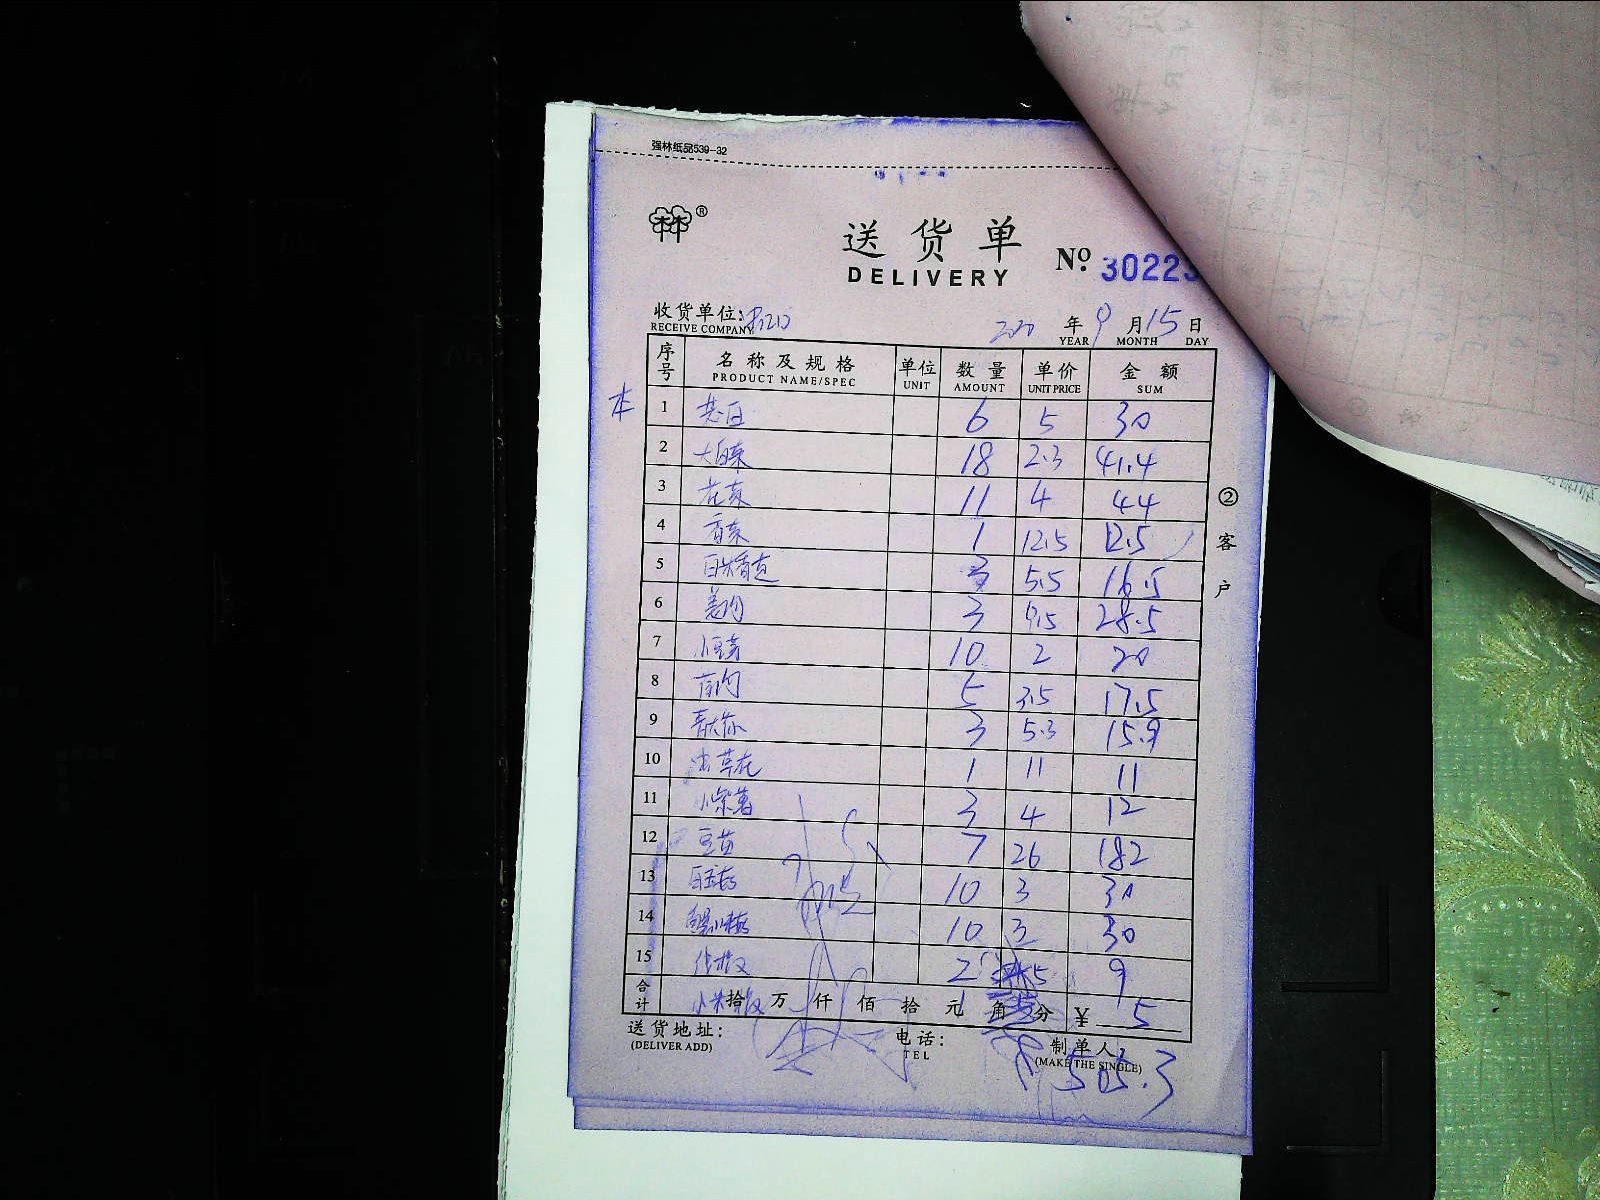 强林纸品539-32
®
送货单
DELIVERY
No. 30223
收货单位:
RECEIVE COMPANY
年 9 月 15 日
YEAR MONTH DAY
序号 名称及规格 单位 数量 单价 金额
PRODUCT NAME/SPEC UNIT AMOUNT UNIT PRICE SUM
本
1 6 5 30
2 大白菜 18 2.3 41.4
3 花菜 11 4 44
4 香菜 1 12.5 12.5
5 3 5.5 16.5
6 3 9.5 28.5
7 小豆芽 10 2 20
8 5 3.5 17.5
9 3 5.3 15.9
10 虫草花 1 11 11
11 小紫薯 3 4 12
12 豆苗 7 26 182
13 白玉菇 10 3 30
14 10 3 30
15 2 9
合计 小米 拾 万 仟 佰 拾 元 角 分 ¥ 5
② 客户
送货地址:
(DELIVER ADD)
电话:
TEL
制单人
(MAKE THE SINGLE)
505.3